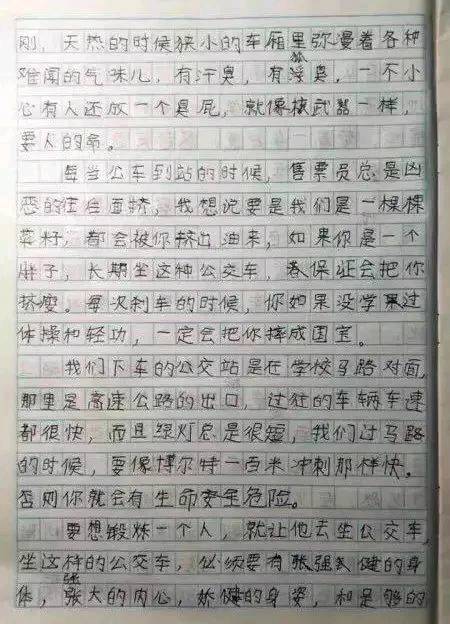 刚，天热的时候狭小的车厢里弥漫着各种
难闻的气味儿，有汗臭，有狐臭，一不小
心有人还放一个臭屁，就像核武器一样，
要人的命。
每当公车到站的时候，售票员总是凶
恶的往后面挤，我想说要是我们是一棵棵
菜籽，都会被你挤出油来，如果你是一个
胖子，长期坐这种公交车，我保证会把你
挤瘦。每次刹车的时候，你如果没学过
体操和轻功，一定会把你摔成国宝。
我们下车的公交站是在学校马路对面，
那里是高速公路的出口，过往的车辆车速
都很快，而且绿灯总是很短，我们过马路
的时候，要像博尔特一百米冲刺那样快。
否则你就会有生命安全危险。
要想锻炼一个人，就让他去坐公交车，
坐这样的公交车，必须要有强健的身
体，强大的内心，娇健的身姿，和足够的